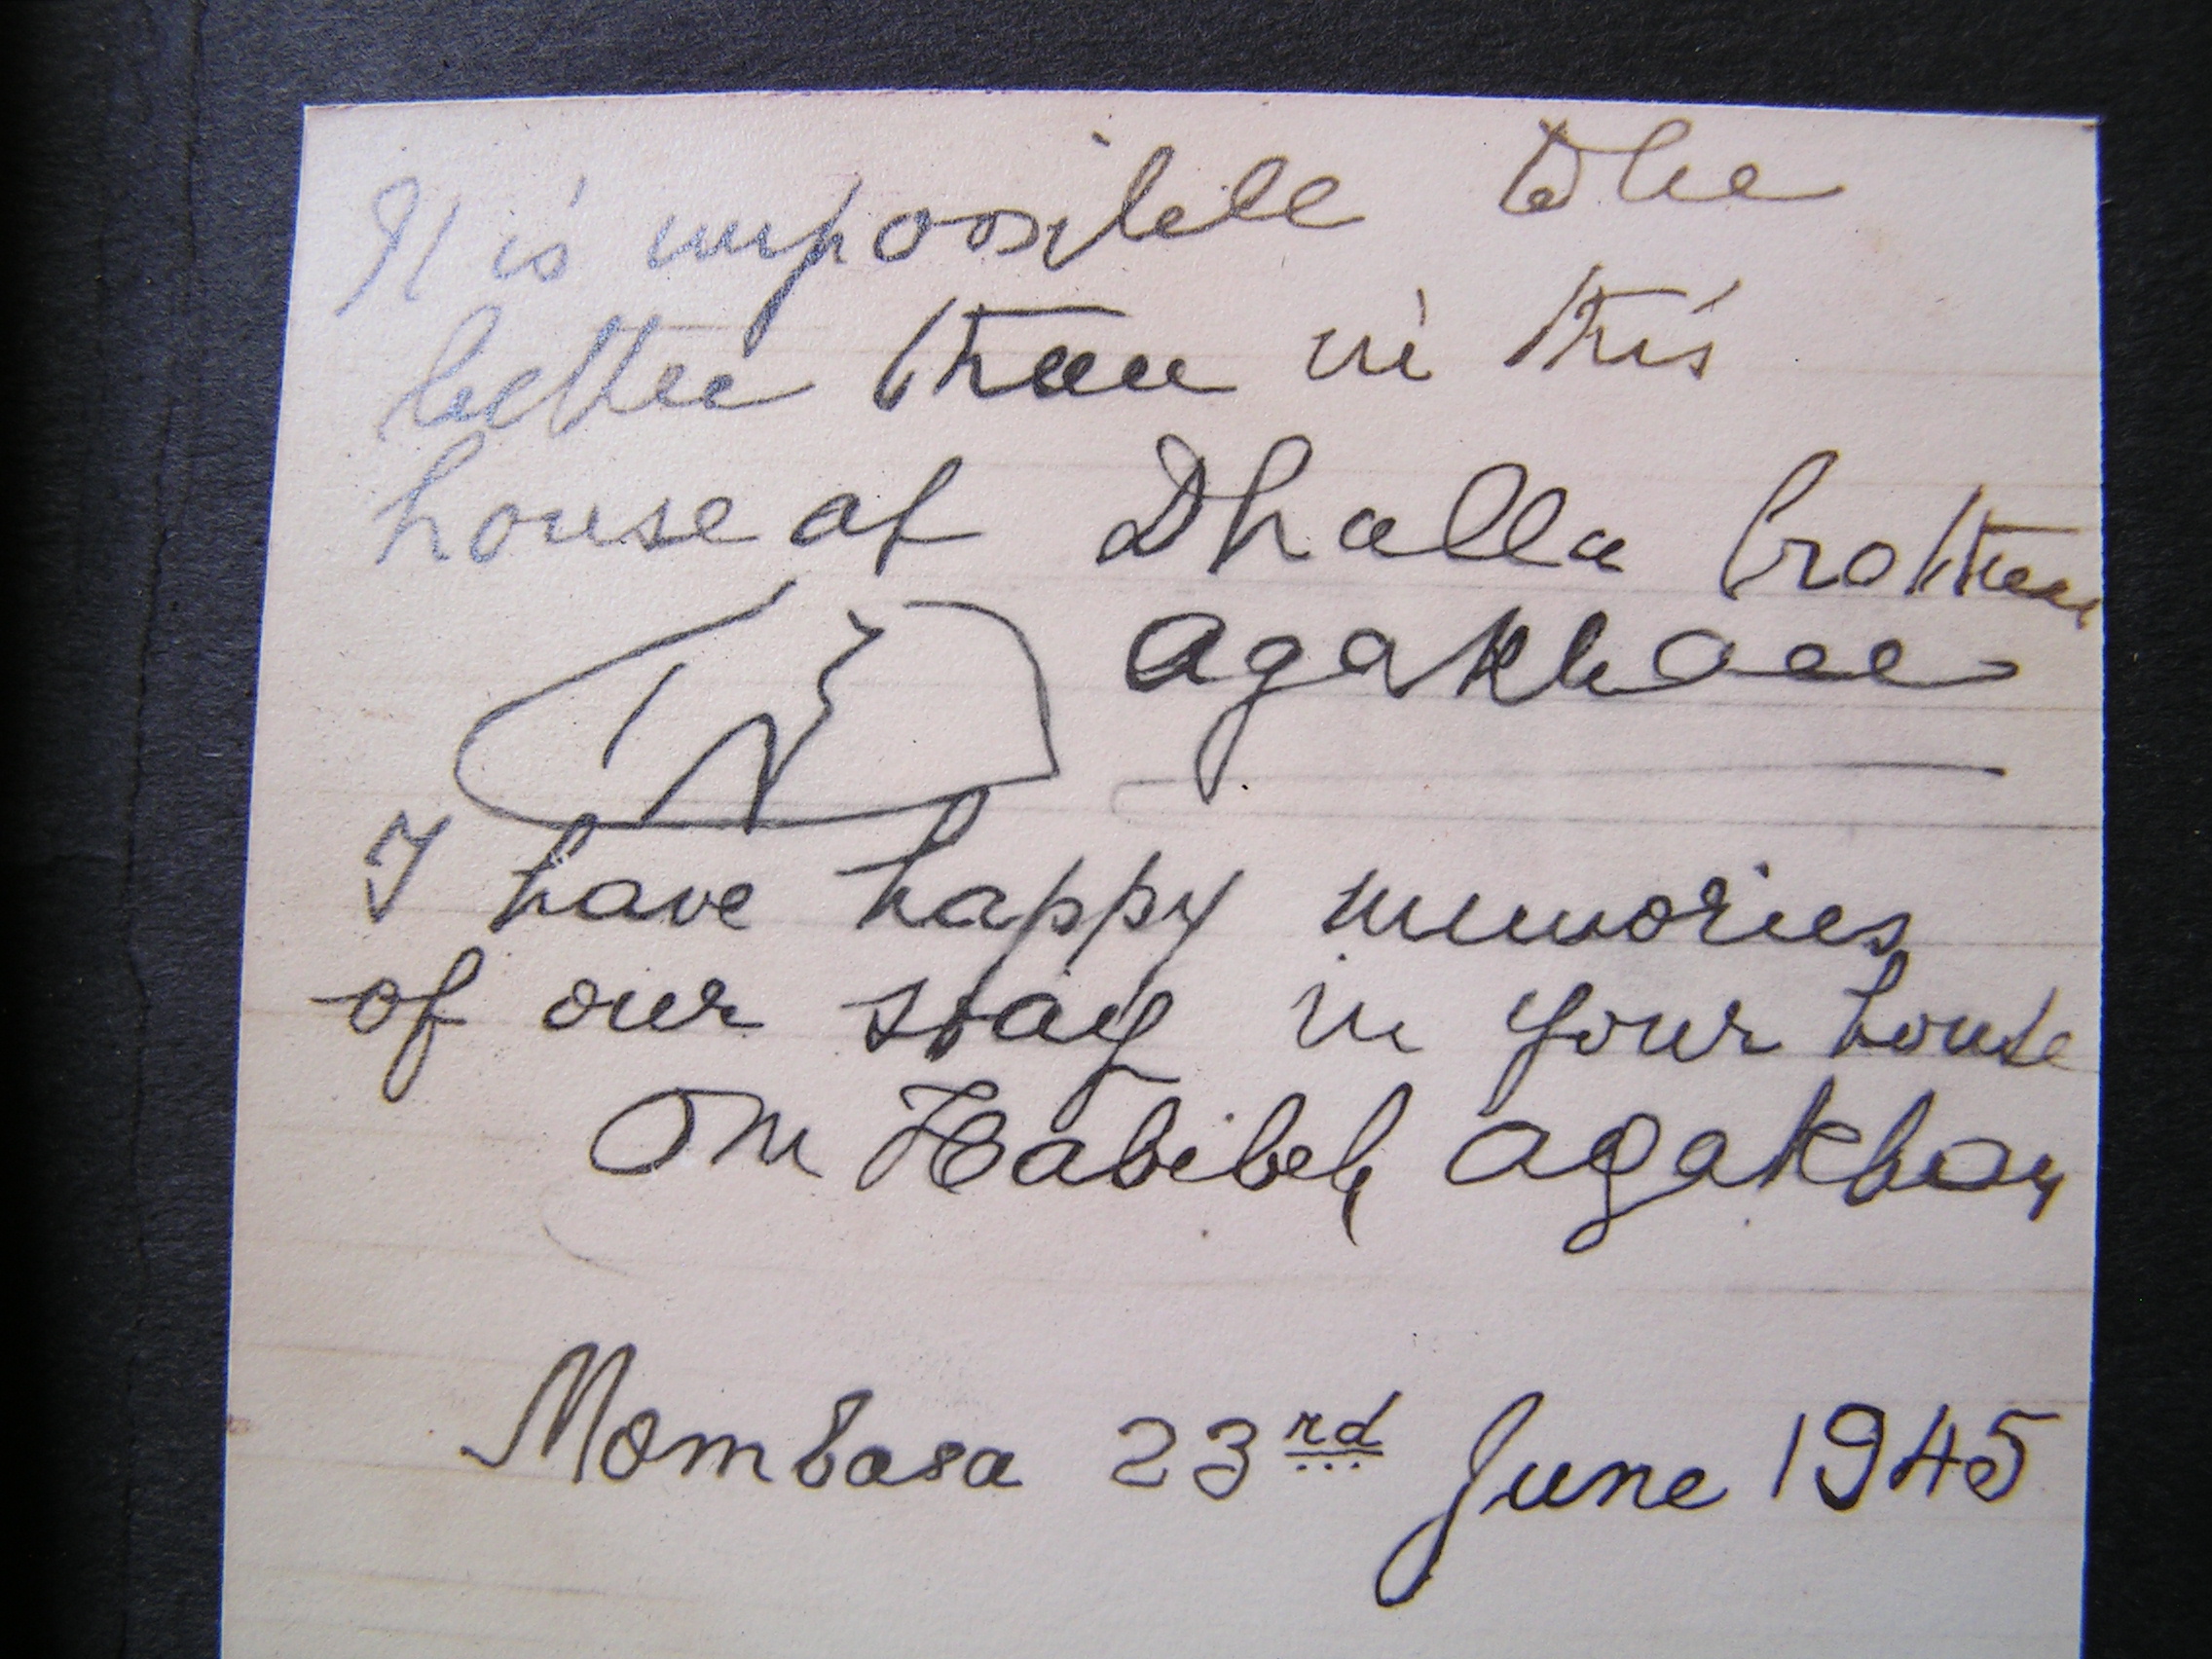 It is impossible to be
better than in this
house of Dhalla brothers
Agakhan
I have happy memories
of our stay in your house
Om Habibeh Agakhan
Mombasa 23rd June 1945